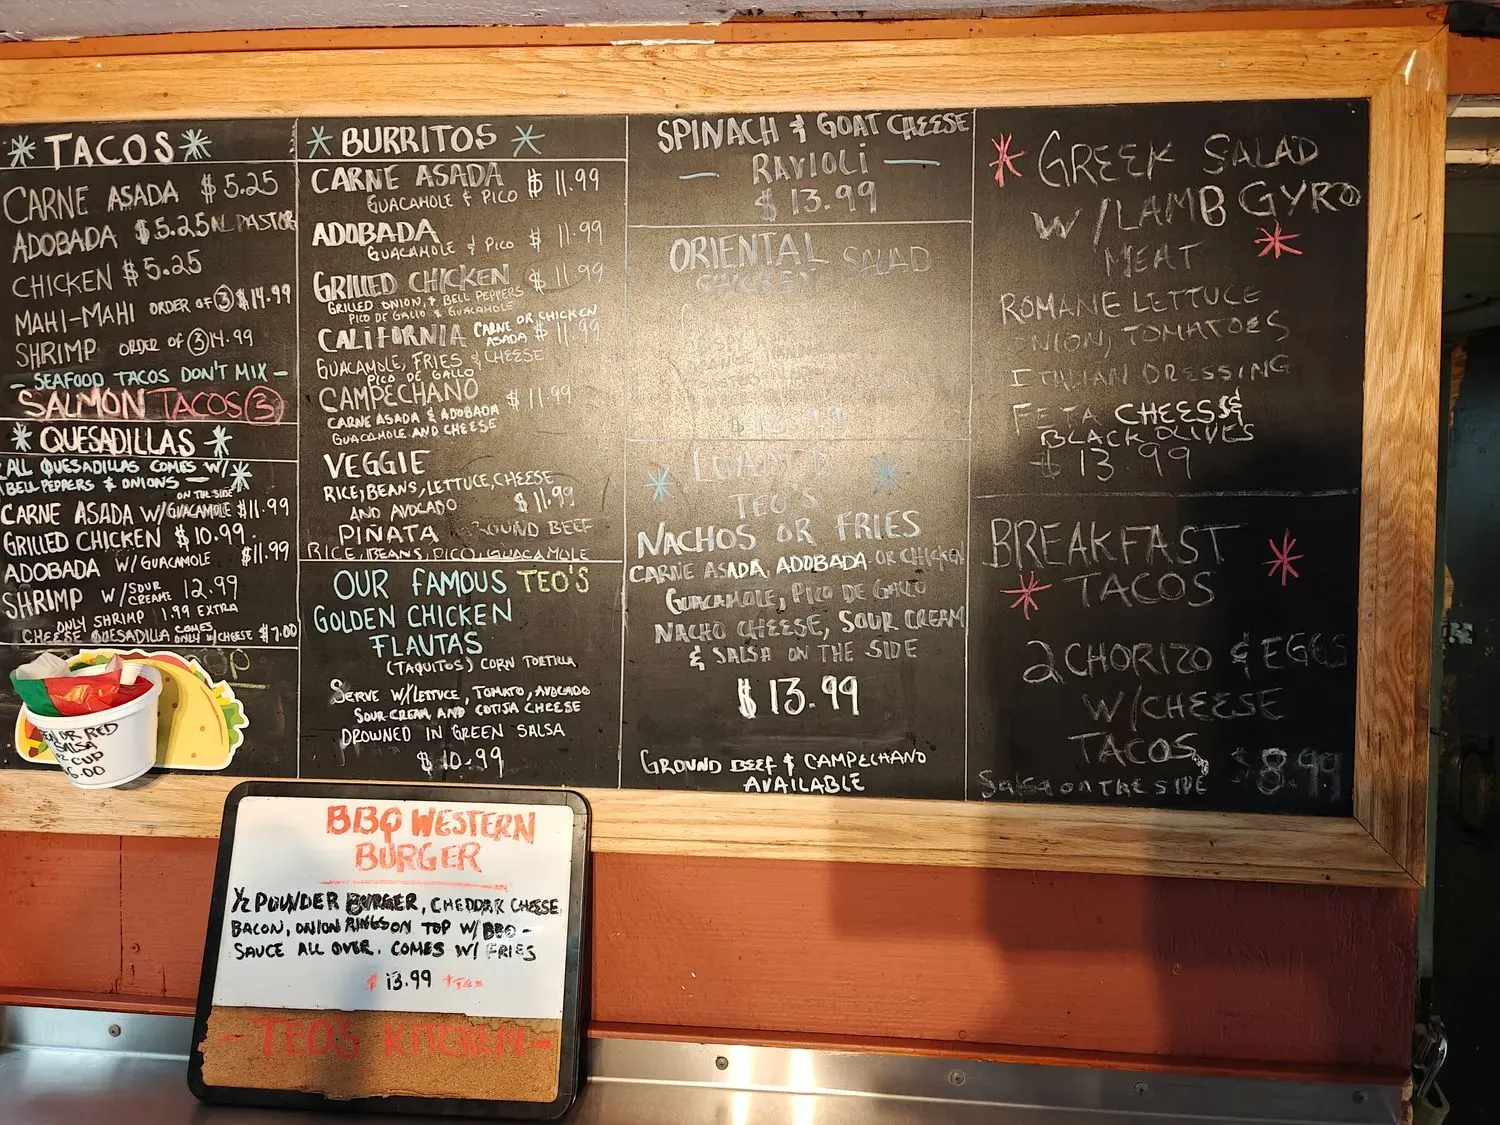 TACOS
CARNE ASADA $5.25
ADOBADA $5.25 AL PASTOR
CHICKEN $5.25
MAHI-MAHI ORDER OF 3 $14.99
SHRIMP ORDER OF 3 14.99
- SEAFOOD TACOS DON'T MIX -
SALMON TACOS 3
QUESADILLAS
ALL QUESADILLAS COMES W/
BELL PEPPERS & ONIONS -
ON THE SIDE
CARNE ASADA W/GUACAMOLE $11.99
GRILLED CHICKEN $10.99.
ADOBADA W/GUACAMOLE $11.99
SHRIMP W/SOUR CREAME 12.99
ONLY SHRIMP 1.99 EXTRA
CHEESE QUESADILLA COMES ONLY W/CHEESE $7.00
OR RED
SALSA
CUP
BURRITOS
CARNE ASADA $11.99
GUACAMOLE & PICO
ADOBADA $11.99
GUACAMOLE & PICO
GRILLED CHICKEN $11.99
GRILLED ONION, & BELL PEPPERS
PICO DE GALLO & GUACAMOLE
CALIFORNIA CARNE ASADA OR CHICKEN $11.99
GUACAMOLE, FRIES & CHEESE
PICO DE GALLO
CAMPECHANO $11.99
CARNE ASADA & ADOBADA
GUACAMOLE AND CHEESE
VEGGIE
RICE, BEANS, LETTUCE, CHEESE
AND AVOCADO $11.99
PIÑATA GROUND BEEF
RICE, BEANS, PICO, GUACAMOLE
OUR FAMOUS TEO'S
GOLDEN CHICKEN
FLAUTAS
(TAQUITOS) CORN TORTILLA
SERVE W/LETTUCE, TOMATO, AVOCADO
SOUR CREAM, AND COTIJA CHEESE
DROWNED IN GREEN SALSA
$10.99
SPINACH & GOAT CHEESE
- RAVIOLI -
$13.99
ORIENTAL SALAD
CHICKEN
LOADED
TEO'S
NACHOS OR FRIES
CARNE ASADA, ADOBADA OR CHICKEN
GUACAMOLE, PICO DE GALLO
NACHO CHEESE, SOUR CREAM
& SALSA ON THE SIDE
$13.99
GROUND BEEF & CAMPECHANO
AVAILABLE
GREEK SALAD
W/LAMB GYRO
MEAT
ROMANE LETTUCE
ONION, TOMATOES
ITALIAN DRESSING
FETA CHEESE &
BLACK OLIVES
$13.99
BREAKFAST
TACOS
2 CHORIZO & EGGS
W/CHEESE
TACOS
Salsa on the side $8.99
BBQ WESTERN
BURGER
½ POUNDER BURGER, CHEDDAR CHEESE,
BACON, ONION RINGS ON TOP W/ BBQ -
SAUCE ALL OVER. COMES W/ FRIES
$13.99 +Tax
- TEO'S KITCHEN -